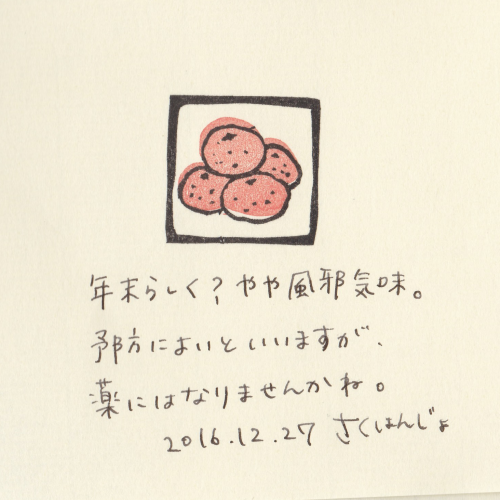 年末らしく?やや風邪気味。
予防によいといいますが、
薬にはなりませんかね。
2016.12.27 さくはんじょ